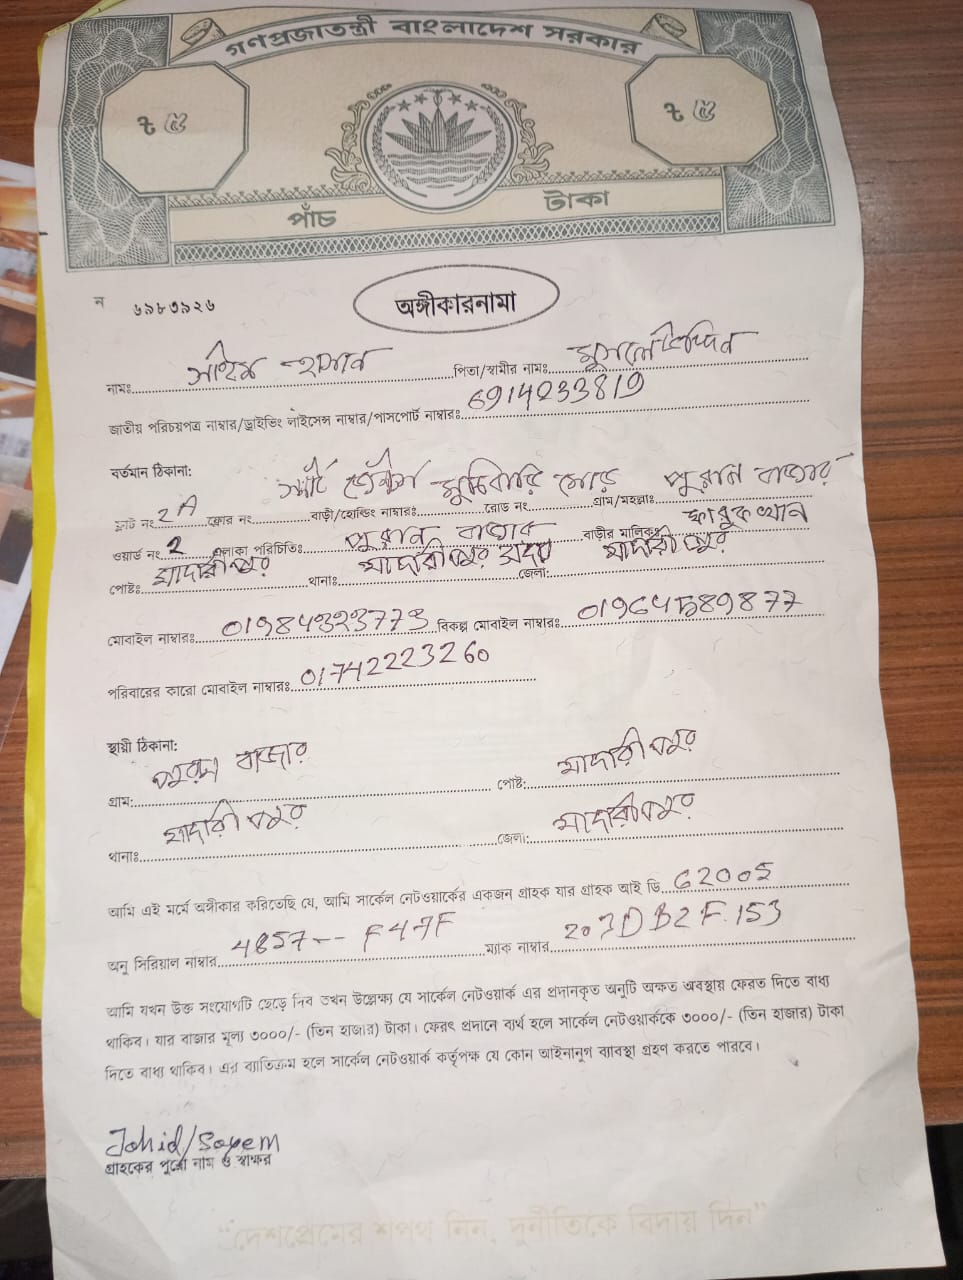 গণপ্রজাতন্ত্রী বাংলাদেশ সরকার
৳ ৫ ৳ ৫
পাঁচ টাকা
ন ৬৯৮৩৯২৬
অঙ্গীকারনামা
নামঃ হাসান পিতা/স্বামীর নামঃ
জাতীয় পরিচয়পত্র নাম্বার/ড্রাইভিং লাইসেন্স নাম্বার/পাসপোর্ট নাম্বারঃ 6914233819
বর্তমান ঠিকানা:
মোড় পুরান বাজার
ফ্লাট নং 2A ফ্লোর নং বাড়ী/হোল্ডিং নাম্বারঃ রোড নং গ্রাম/মহল্লাঃ
ওয়ার্ড নং 2 এলাকা পরিচিতিঃ পুরান বাজার বাড়ীর মালিকঃ ফারুক খান
পোষ্টঃ মাদারীপুর থানাঃ মাদারীপুর সদর জেলা: মাদারীপুর
মোবাইল নাম্বারঃ 01984323773 বিকল্প মোবাইল নাম্বারঃ
পরিবারের কারো মোবাইল নাম্বারঃ 01742223260
স্থায়ী ঠিকানা:
গ্রাম: পুরান বাজার পোষ্ট: মাদারীপুর
থানাঃ মাদারীপুর জেলা: মাদারীপুর
আমি এই মর্মে অঙ্গীকার করিতেছি যে, আমি সার্কেল নেটওয়ার্কের একজন গ্রাহক যার গ্রাহক আই ডি G2005
অনু সিরিয়াল নাম্বার 4857-- F47F ম্যাক নাম্বার 207DB2F.153
আমি যখন উক্ত সংযোগটি ছেড়ে দিব তখন উল্লেক্ষ্য যে সার্কেল নেটওয়ার্ক এর প্রদানকৃত অনুটি অক্ষত অবস্থায় ফেরত দিতে বাধ্য
থাকিব। যার বাজার মূল্য ৩০০০/- (তিন হাজার) টাকা। ফেরৎ প্রদানে ব্যর্থ হলে সার্কেল নেটওয়ার্ককে ৩০০০/- (তিন হাজার) টাকা
দিতে বাধ্য থাকিব। এর ব্যতিক্রম হলে সার্কেল নেটওয়ার্ক কর্তৃপক্ষ যে কোন আইনানুগ ব্যবস্থা গ্রহণ করতে পারবে।
Jahid/Sayem
গ্রাহকের পুরো নাম ও স্বাক্ষর
"দেশপ্রেমের শপথ নিন, দুর্নীতিকে বিদায় দিন"